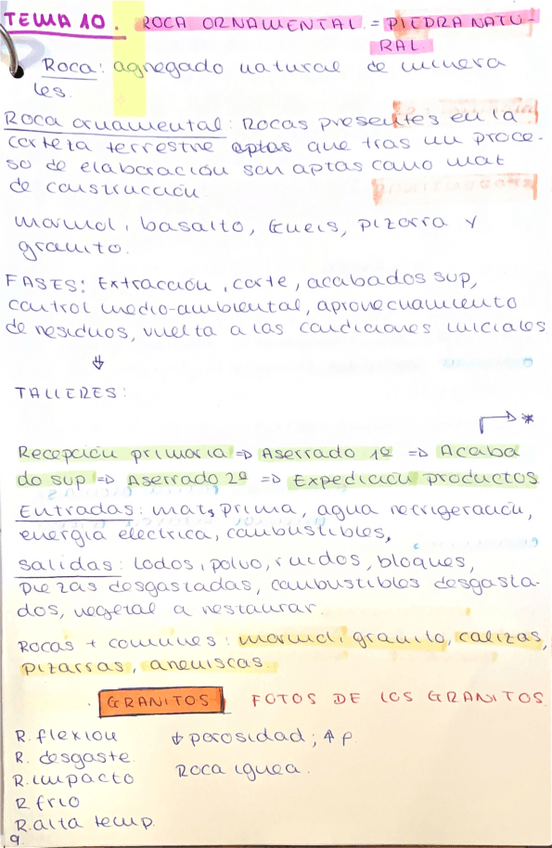 TEMA 10. ROCA ORNAMENTAL = PIEDRA NATU-
RAL.
Roca: agregado natural de minera
les.
Roca ornamental: Rocas presentes en la
corteza terrestre aptas que tras un proce-
so de elaboración son aptas como mat
de construcción.
marmol, basalto, Gneis, pizarra y
granito.
FASES: Extracción, corte, acabados sup,
control medio-ambiental, aprovechamiento
de residuos, vuelta a las condiciones iniciales
↓
TALLERES:
→*
Recepción primaria => Aserrado 1º => Acaba
do sup => Aserrado 2º => Expedición productos
Entradas: mat prima, agua refrigeración,
energía eléctrica, combustibles,
Salidas: lodos, polvo, ruidos, bloques,
piezas desgastadas, combustibles desgasta-
dos, vegetal a restaurar.
Rocas + comunes: marmol, granito, calizas,
pizarras, areniscas.
GRANITOS FOTOS DE LOS GRANITOS
R. flexion ↓ porosidad; ↑ ρ
R. desgaste.
R. impacto Roca ignea.
R. frio
R. alta temp.
9.